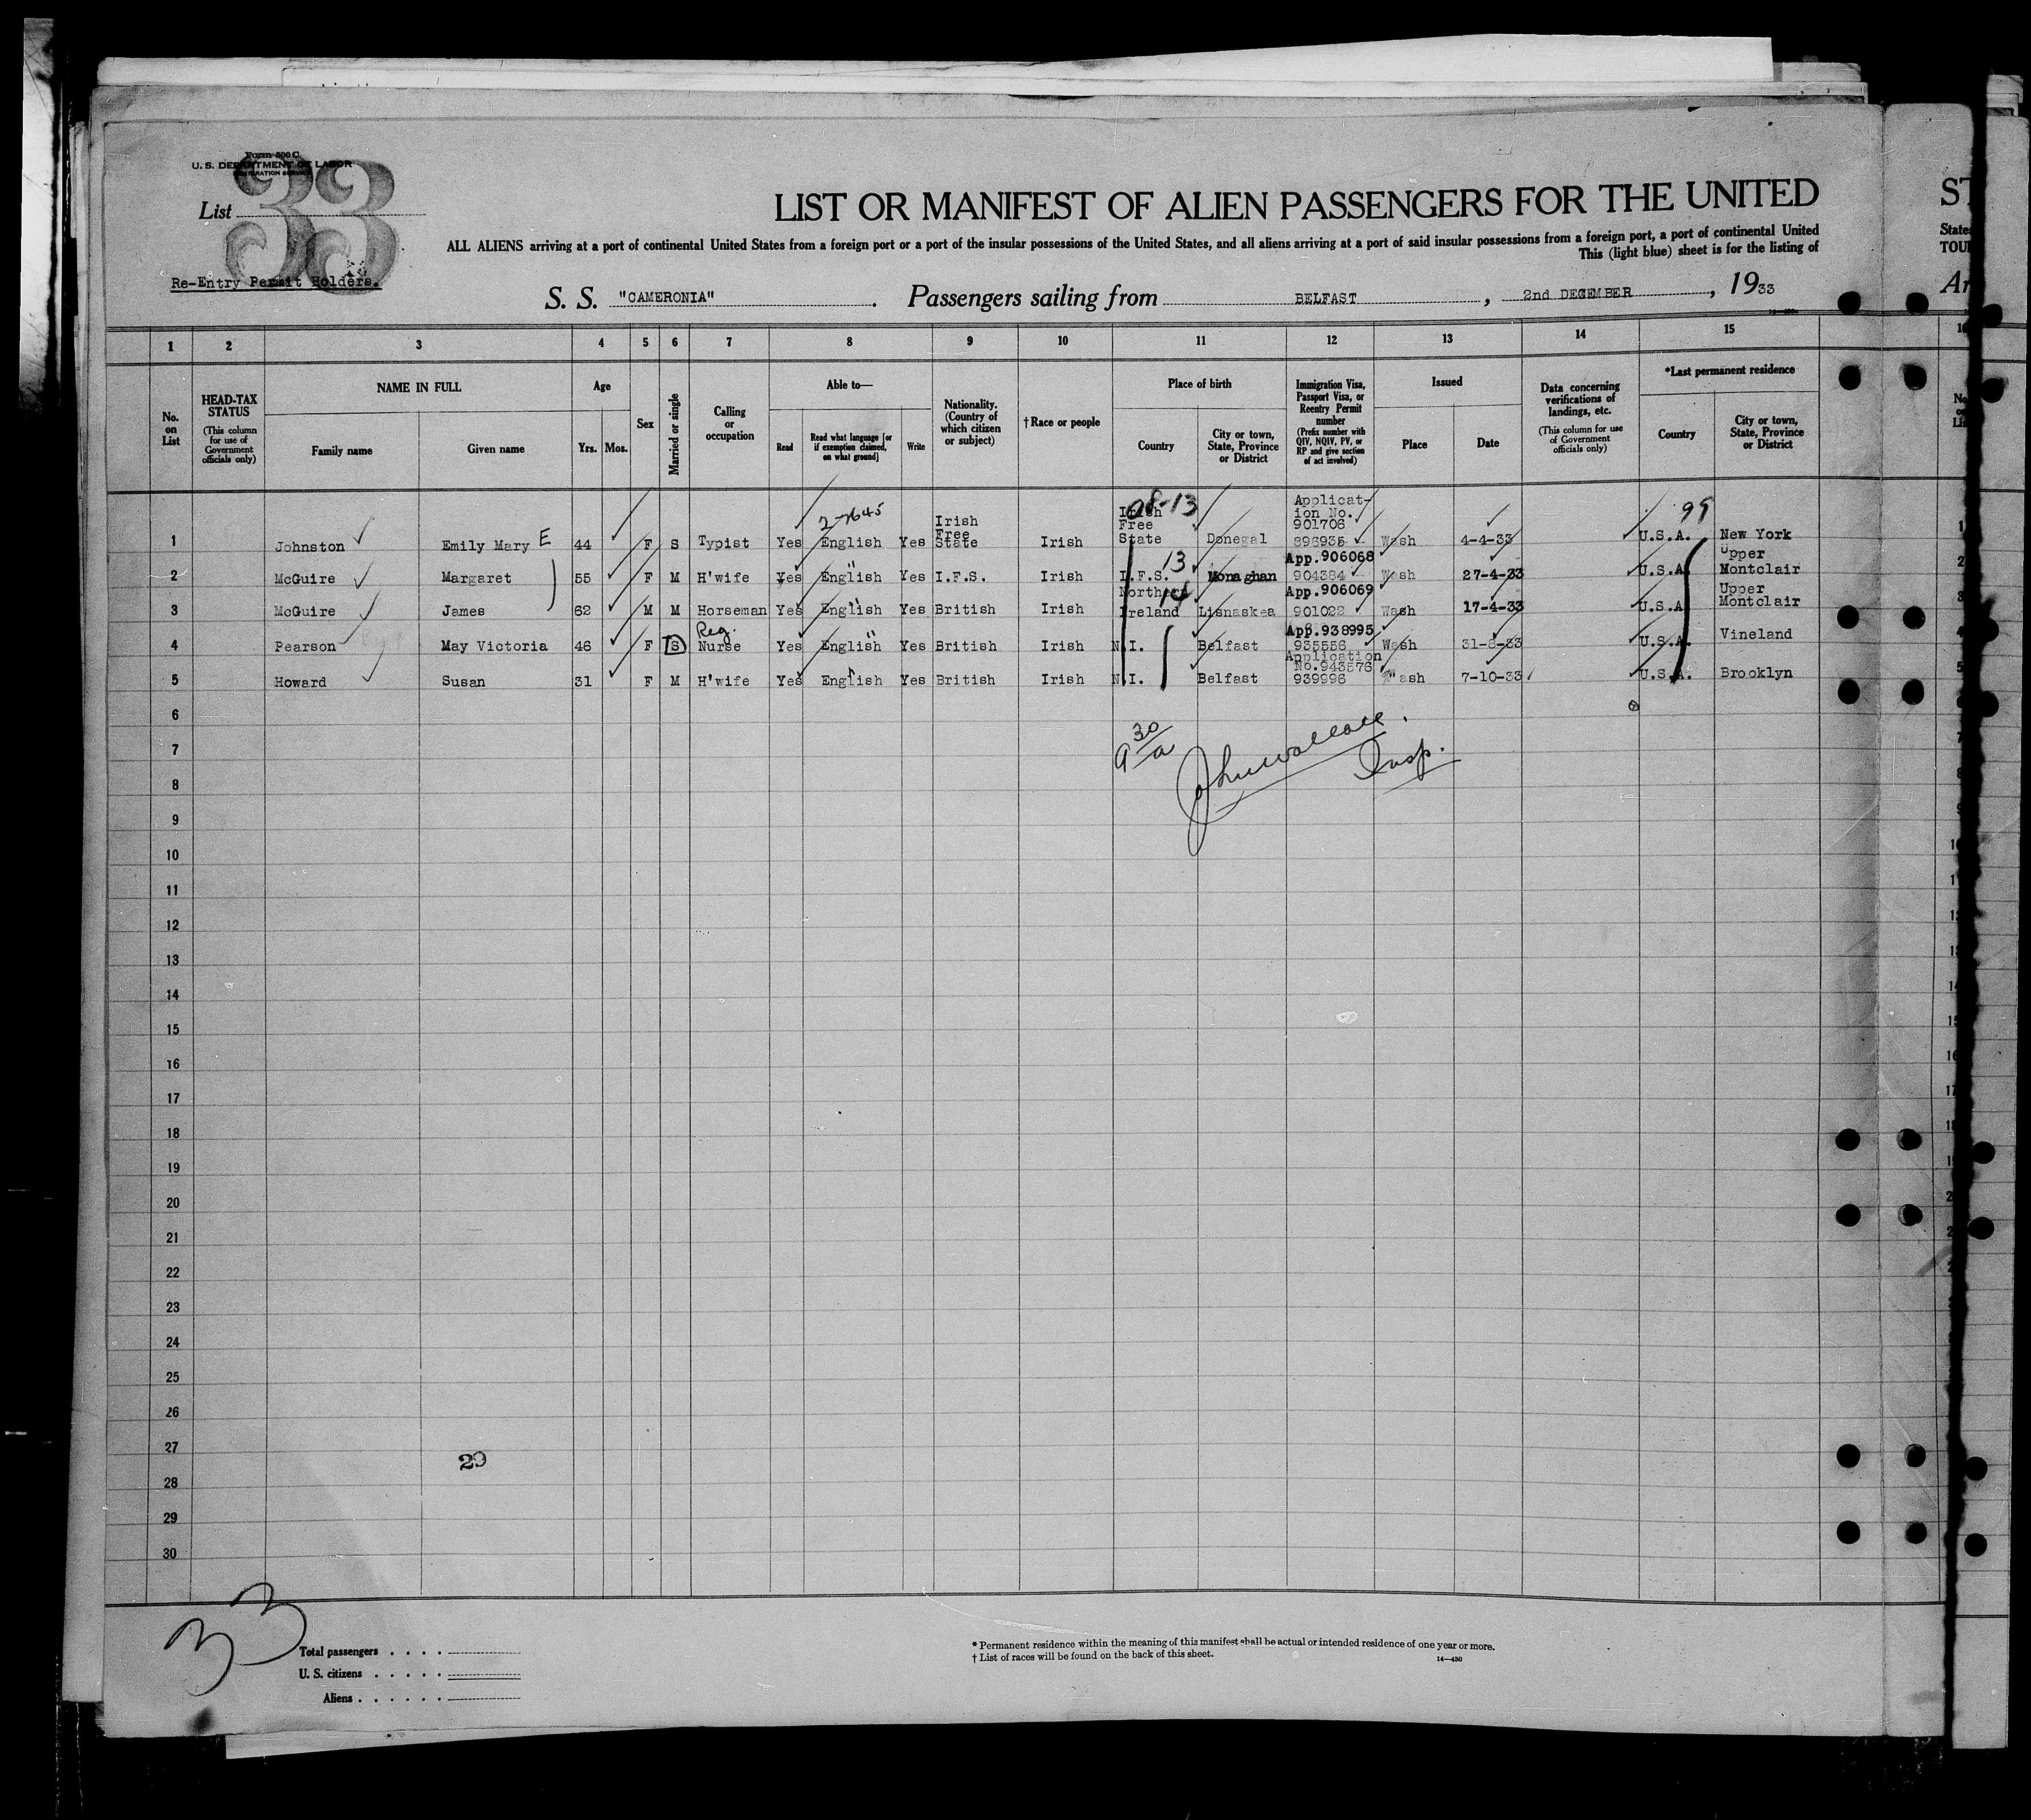 Form 500 C
U. S. DEPARTMENT OF LABOR
IMMIGRATION SERVICE
List 33
Re-Entry Permit Holders.
LIST OR MANIFEST OF ALIEN PASSENGERS FOR THE UNITED
ST
ALL ALIENS arriving at a port of continental United States from a foreign port or a port of the insular possessions of the United States, and all aliens arriving at a port of said insular possessions from a foreign port, a port of continental United
States
This (light blue) sheet is for the listing of
TOU
S. S. "CAMERONIA". Passengers sailing from BELFAST, 2nd DECEMBER, 1933
Ar
1 2 3 4 5 6 7 8 9 10 11 12 13 14 15
No. on List
HEAD-TAX STATUS (This column for use of Government officials only)
NAME IN FULL Family name Given name
Age Yrs. Mos.
Sex
Married or single
Calling or occupation
Able to— Read Read what language [or if exemption claimed, on what ground] Write
Nationality. (Country of which citizen or subject)
† Race or people
Place of birth Country City or town, State, Province or District
Immigration Visa, Passport Visa, or Reentry Permit number (Prefix number with QIV, NQIV, PV, or RP and give section of act involved)
Issued Place Date
Data concerning verifications of landings, etc. (This column for use of Government officials only)
*Last permanent residence Country City or town, State, Province or District
2-7645 08-13 99
1 Johnston Emily Mary E 44 F S Typist Yes English Yes Irish Free State Irish Irish Free State Donegal Application No. 901706 896935 Wash 4-4-33 U.S.A. New York
2 McGuire Margaret 55 F M H'wife Yes English Yes I.F.S. Irish I.F.S. 13 Monaghan App.906068 904384 Wash 27-4-33 U.S.A. Upper Montclair
3 McGuire James 62 M M Horseman Yes English Yes British Irish Northern Ireland 14 Lisnaskea App.906069 901022 Wash 17-4-33 U.S.A. Upper Montclair
4 Pearson May Victoria 46 F S Reg. Nurse Yes English Yes British Irish N.I. Belfast App.938995 935556 Wash 31-8-33 U.S.A. Vineland
5 Howard Susan 31 F M H'wife Yes English Yes British Irish N.I. Belfast Application No.943576 939996 Wash 7-10-33 U.S.A. Brooklyn
6
7
9 30/a John Wallace. Insp.
8
9
10
11
12
13
14
15
16
17
18
19
20
21
22
23
24
25
26
27
29
28
29
30
33
Total passengers
U. S. citizens
Aliens
* Permanent residence within the meaning of this manifest shall be actual or intended residence of one year or more.
† List of races will be found on the back of this sheet.
14—430